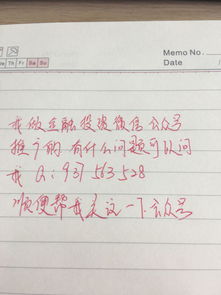 Memo No.
Date
Th Fr Sa Su
我做金融投资微信公众号
推广的 有什么问题可以问
我 Q: 937 563 528
顺便帮我关注一下公众号